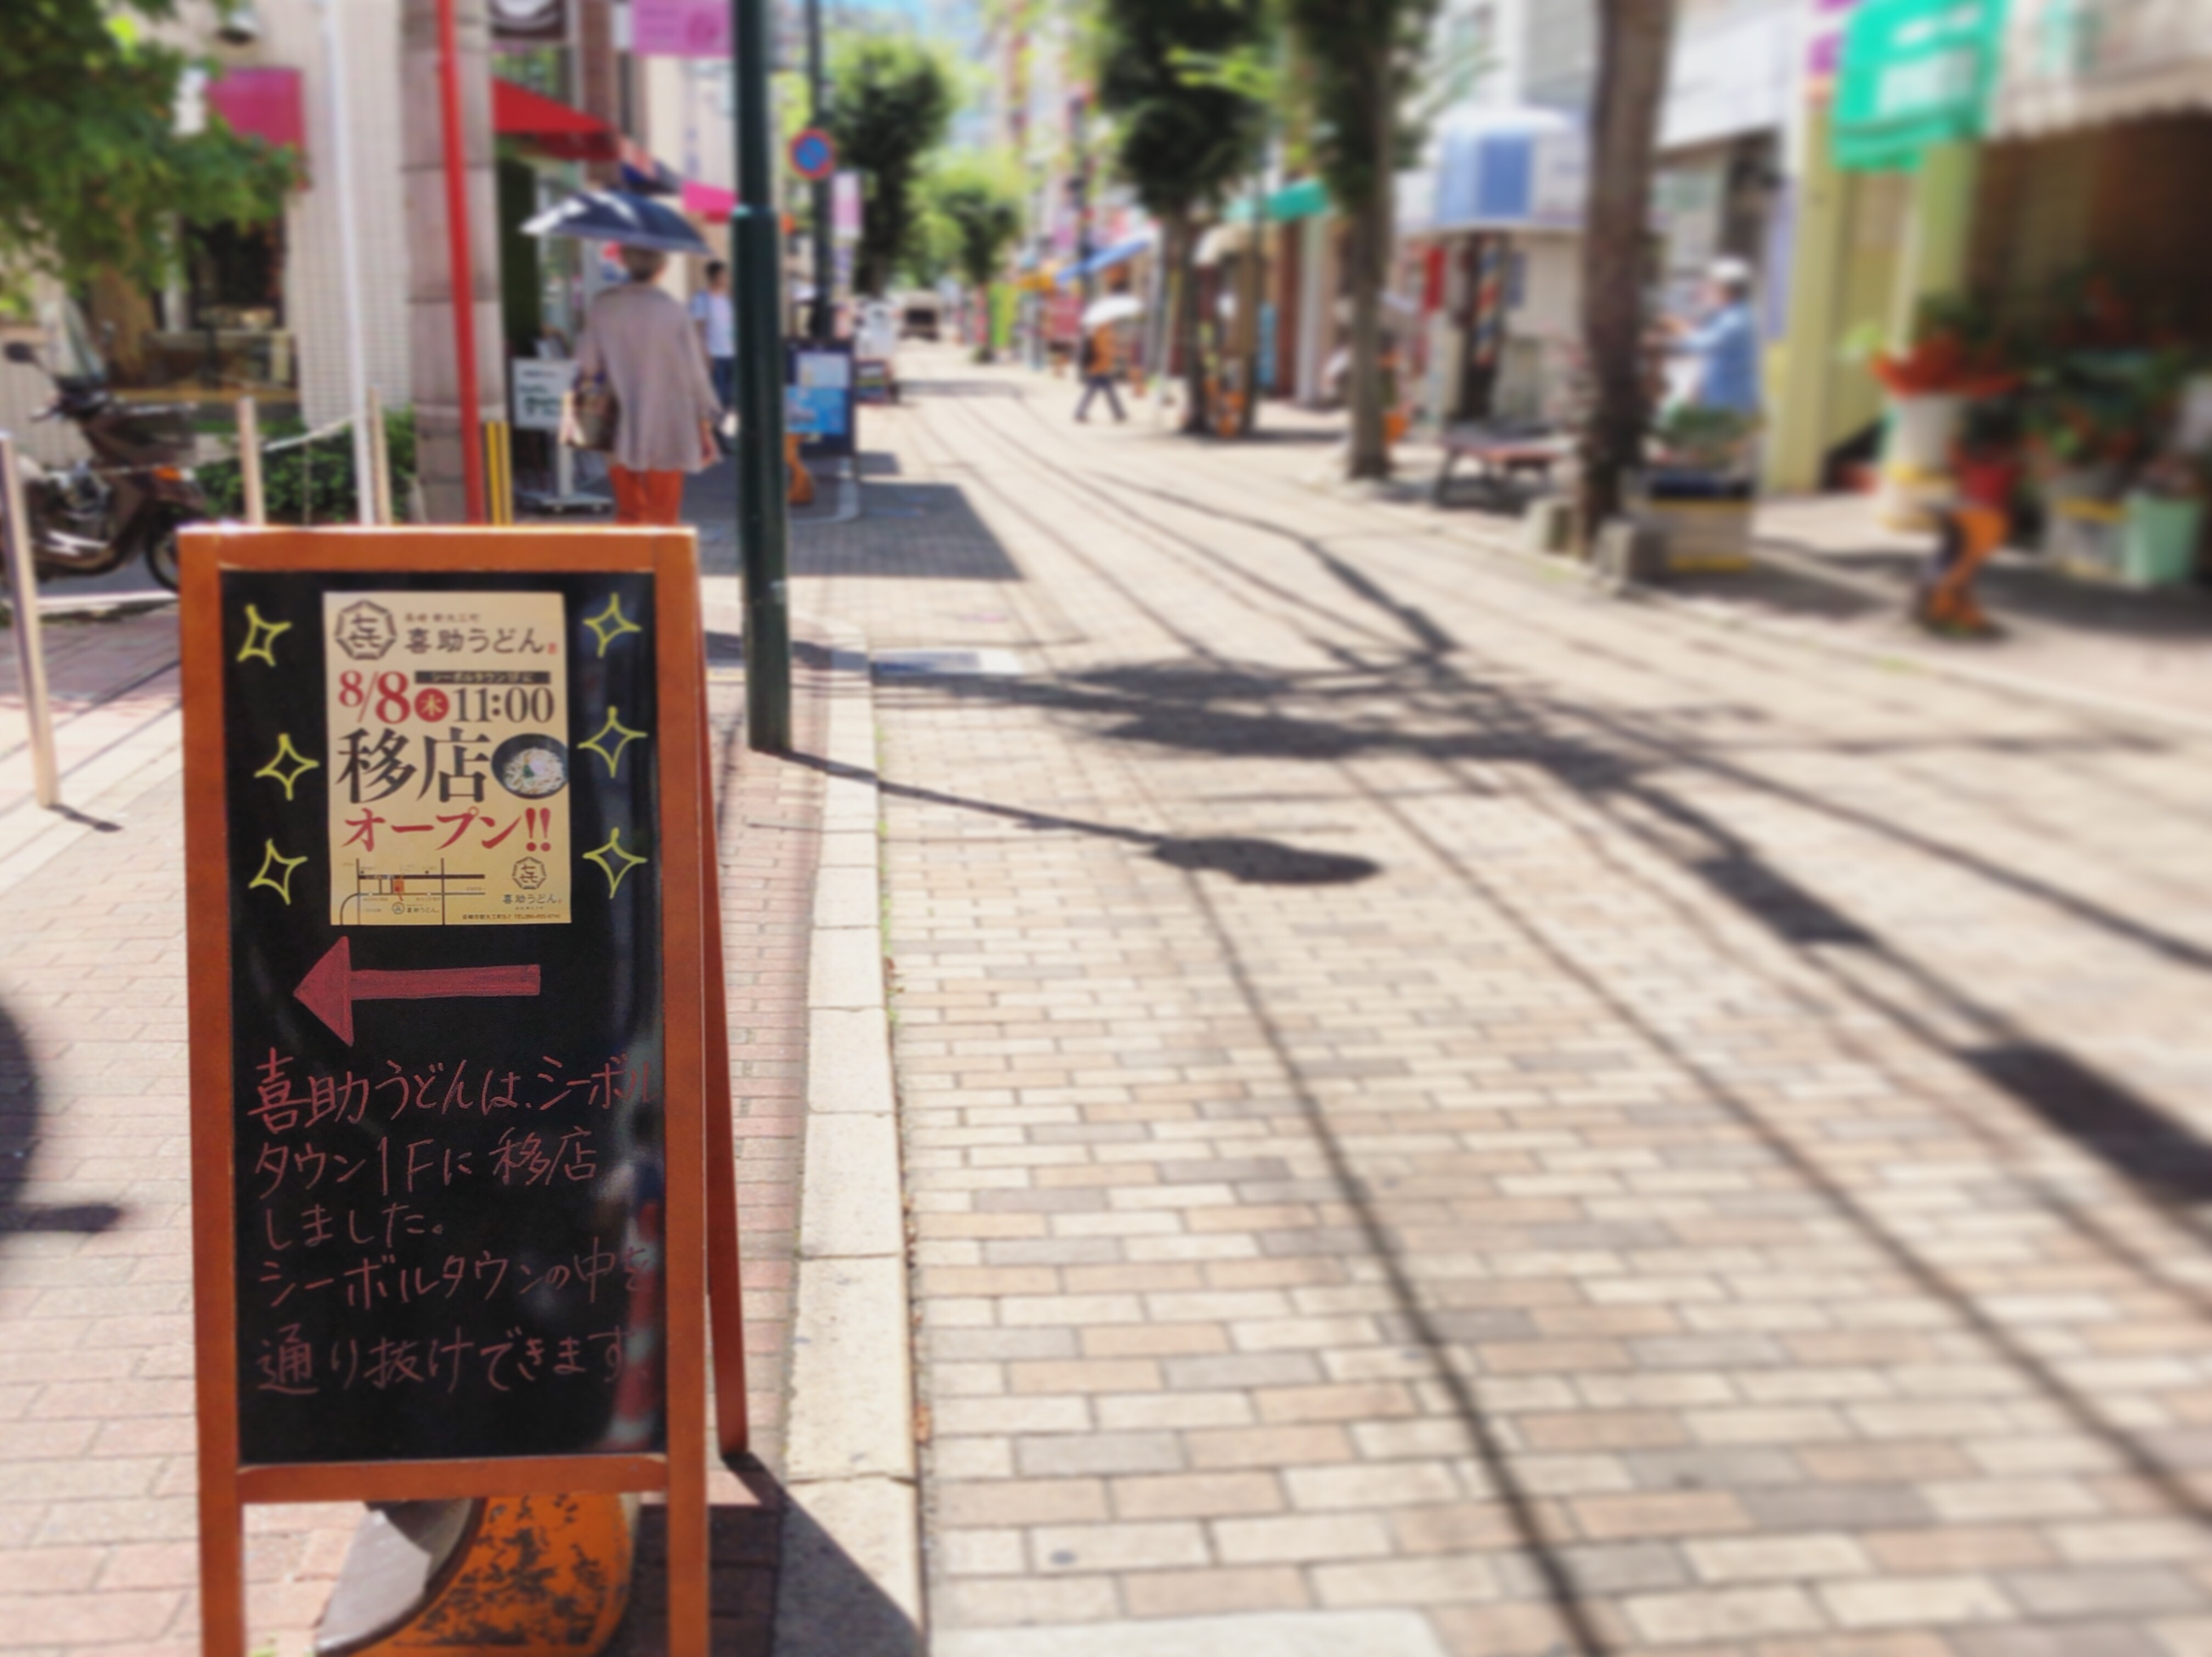 喜助うどん
シーボルタウン1Fに
8/8 木 11:00
移店
オープン!!
喜助うどん
喜助うどん
喜助うどんは、シーボル
タウン1Fに移店
しました。
シーボルタウンの中を
通り抜けできます